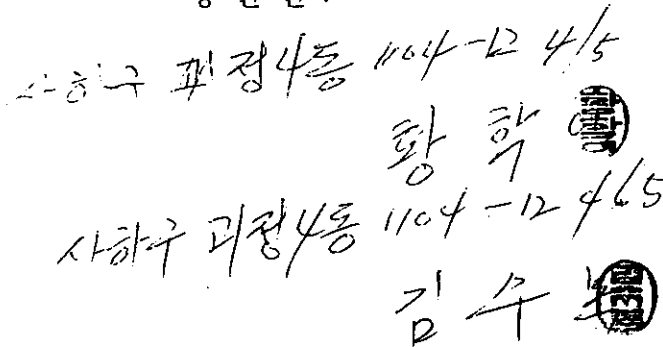 사하구 괴정4동 1104-12 4/5
황 학
사하구 괴정4동 1104-12 4/5
김 수